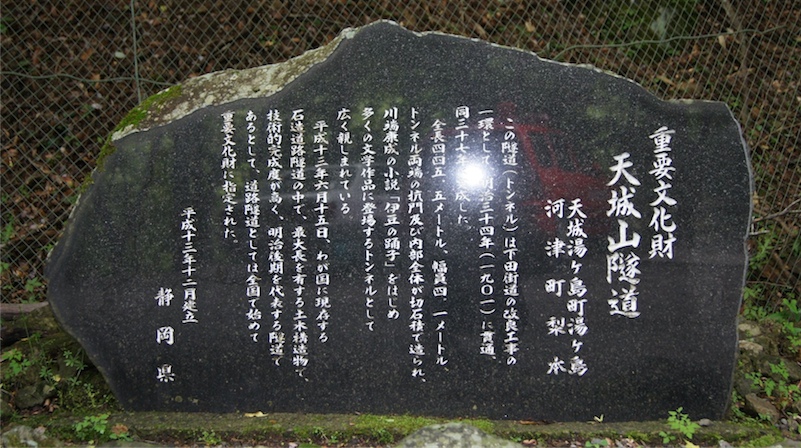 重要文化財
天城山隧道
天城湯ケ島町湯ケ島
河津町梨本
この隧道(トンネル)は下田街道の改良工事の
一環として 明治三十四年(一九〇一)に貫通、
同三十七年 成した。
全長四四五・五メートル、幅員四・一メートル、
トンネル両端の抗門及び内部全体が切石積で造られ、
川端康成の小説「伊豆の踊子」をはじめ
多くの文学作品に登場するトンネルとして
広く親しまれている
平成十三年六月十五日、わが国に現存する
石造道路隧道の中で、最大長を有する土木構造物で、
技術的完成度が高く、明治後期を代表する隧道で
あるとして、道路隧道としては全国で始めて
重要文化財に指定された。
平成十三年十二月建立
静岡県